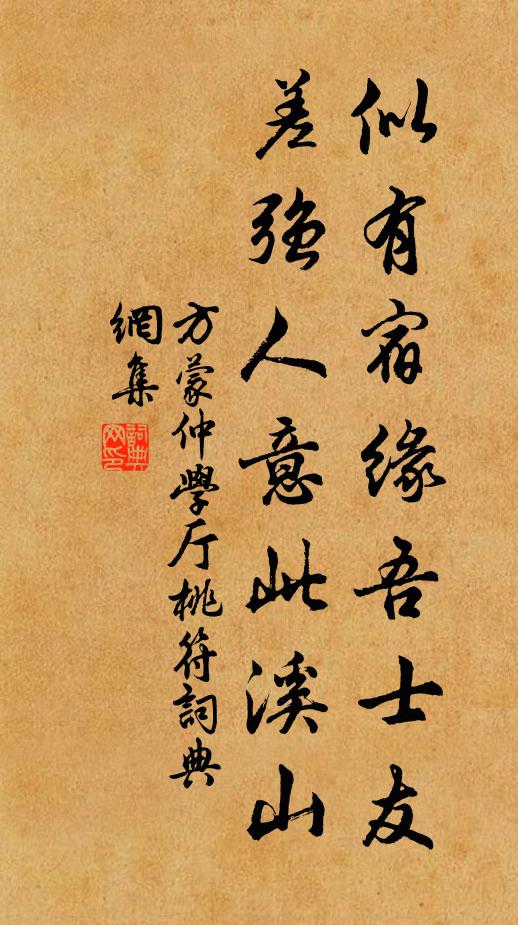 似有宿緣吾士友
差強人意此溪山
方蒙仲學厅桃符詞典
網集
詞典
网印